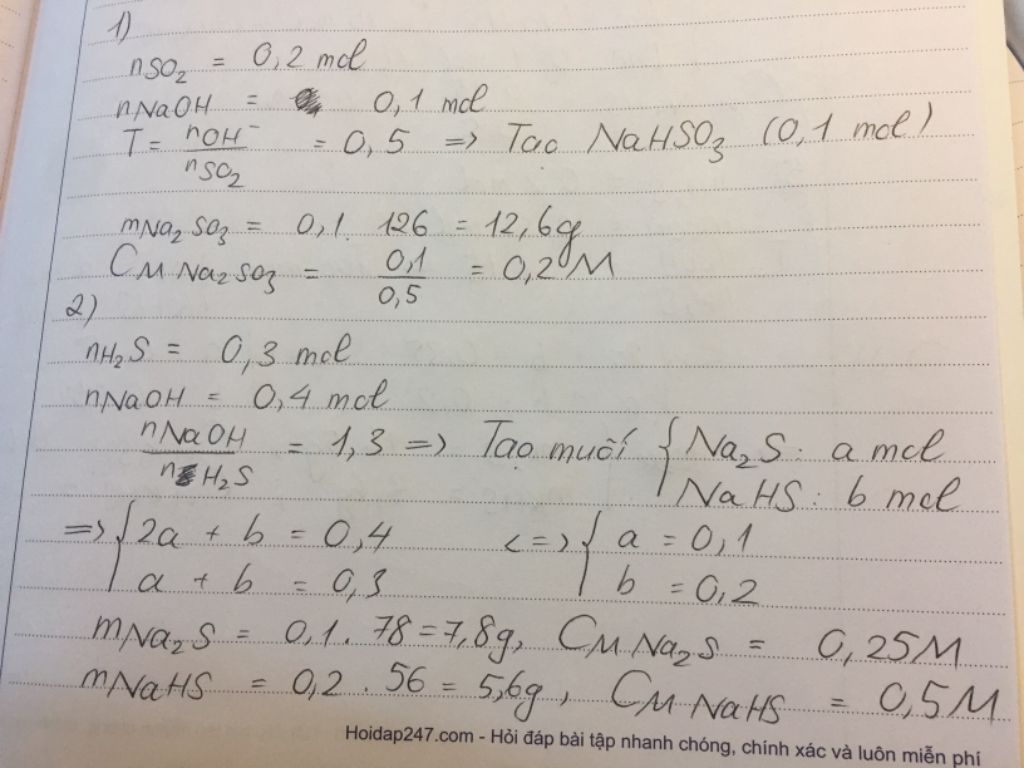 1)
nSO₂ = 0,2 mol
nNaOH = 0,1 mol
T = nOH⁻ / nSO₂ = 0,5 => Tạo NaHSO₃ (0,1 mol)
mNa₂SO₃ = 0,1. 126 = 12,6g
CM Na₂SO₃ = 0,1 / 0,5 = 0,2M
2)
nH₂S = 0,3 mol
nNaOH = 0,4 mol
nNaOH / nH₂S = 1,3 => Tạo muối { Na₂S : a mol
NaHS : b mol
=> { 2a + b = 0,4 <=> { a = 0,1
a + b = 0,3 b = 0,2
mNa₂S = 0,1. 78 = 7,8g, CM Na₂S = 0,25M
mNaHS = 0,2 . 56 = 5,6g, CM NaHS = 0,5M
Hoidap247.com - Hỏi đáp bài tập nhanh chóng, chính xác và luôn miễn phí